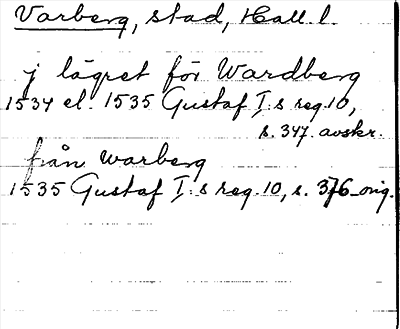 Varberg, stad, Hall. l.
j lägret för Wardberg
1534 el. 1535 Gustaf I:s reg. 10,
s. 347. avskr.
från warberg
1535 Gustaf I:s reg. 10, s. 376 orig.